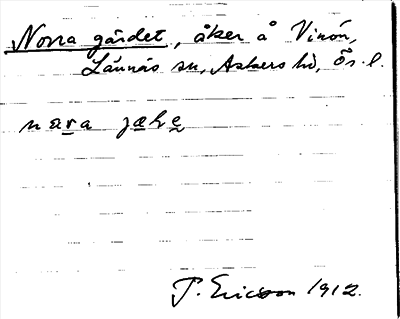 Norra gärdet, åker å Vinön,
Lännäs sn, Askers hd, Ör. l.
nara jæle
T. Ericsson 1912.